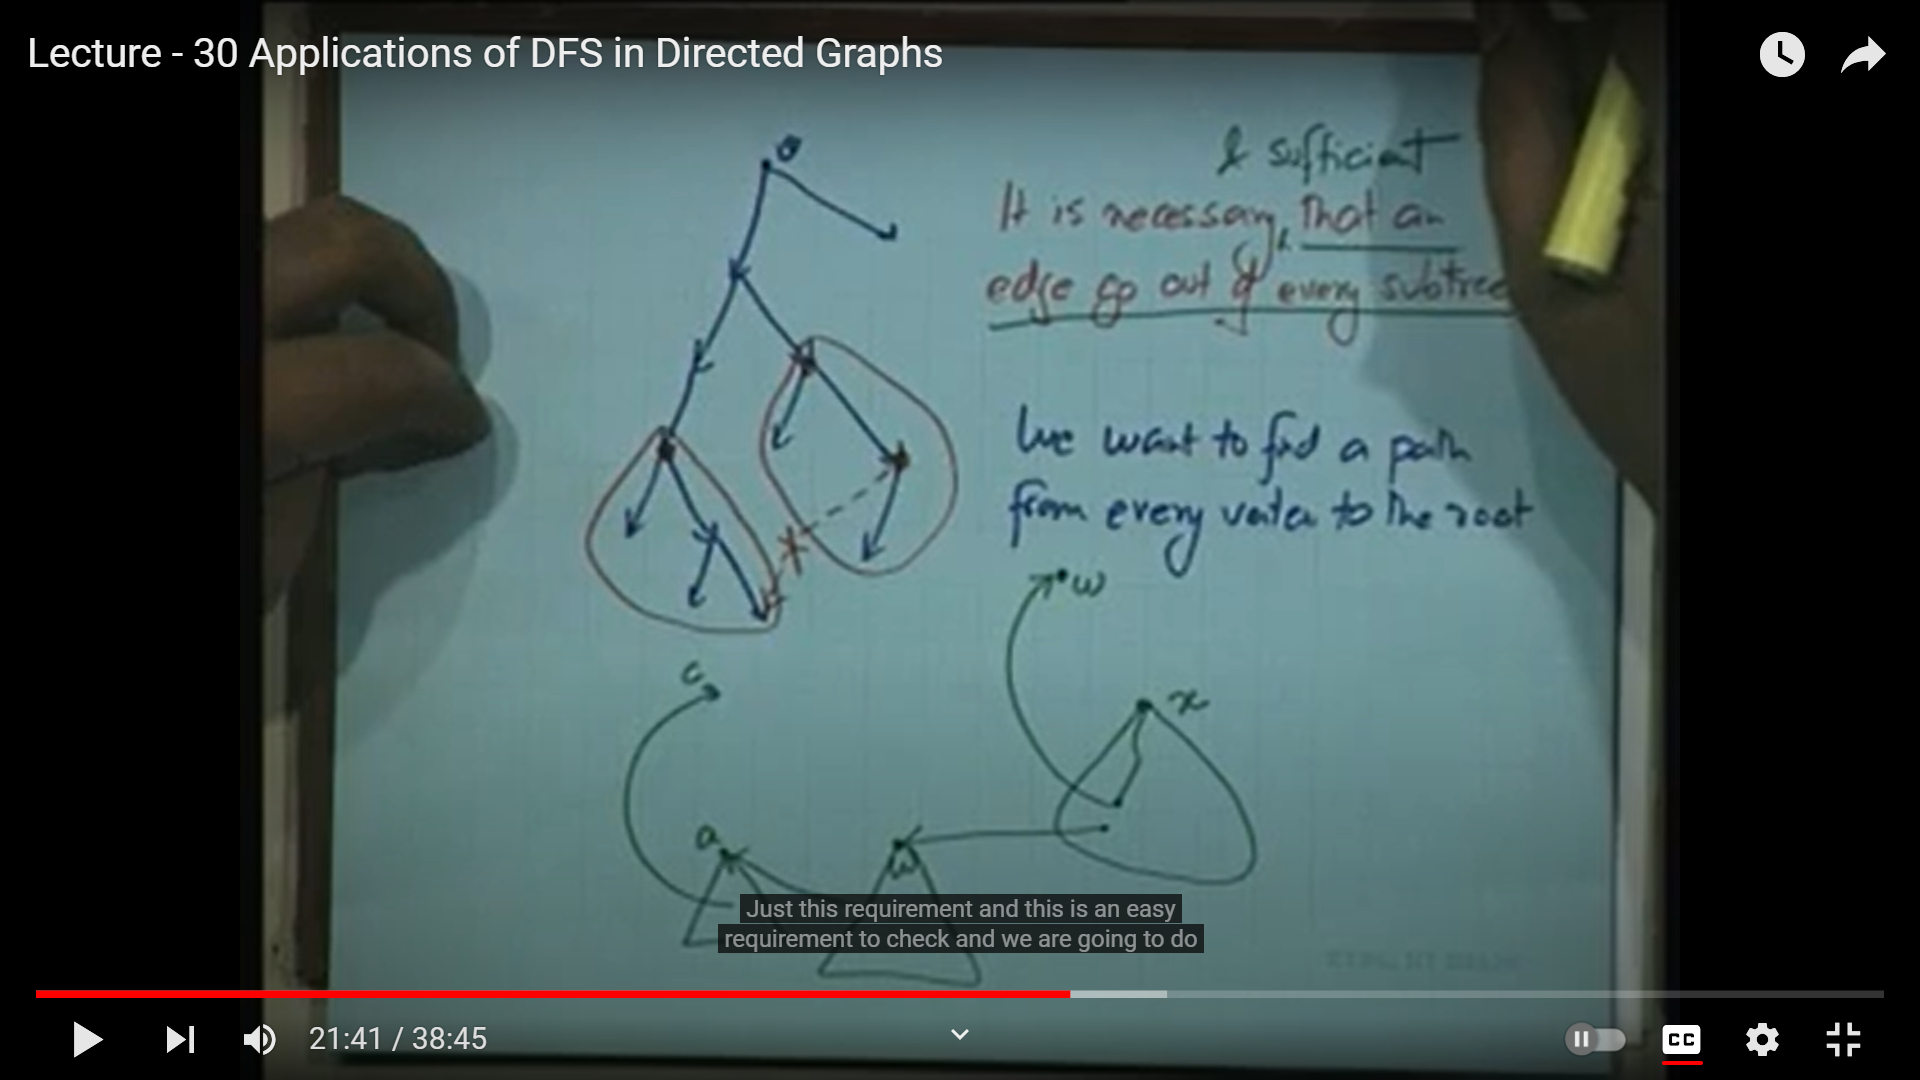 Lecture - 30 Applications of DFS in Directed Graphs
& sufficient
It is necessary that an
edge go out of every subtree
We want to find a path
from every vertex to the root
w
c
x
a
w
Just this requirement and this is an easy
requirement to check and we are going to do
21:41 / 38:45
CC